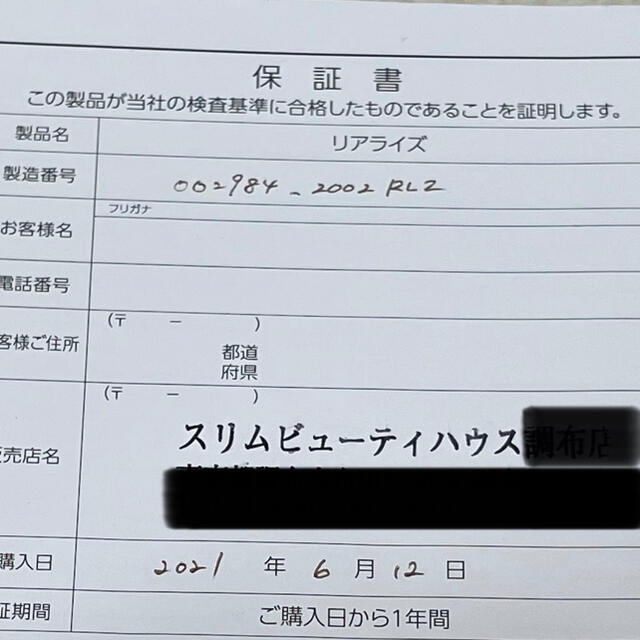 保証書
この製品が当社の検査基準に合格したものであることを証明します。
製品名 リアライズ
製造番号 002984-2002RLZ
フリガナ
お客様名
電話番号
(〒 - )
客様ご住所 都道
府県
(〒 - )
売店名 スリムビューティハウス調布店
購入日 2021 年 6 月 12 日
証期間 ご購入日から1年間